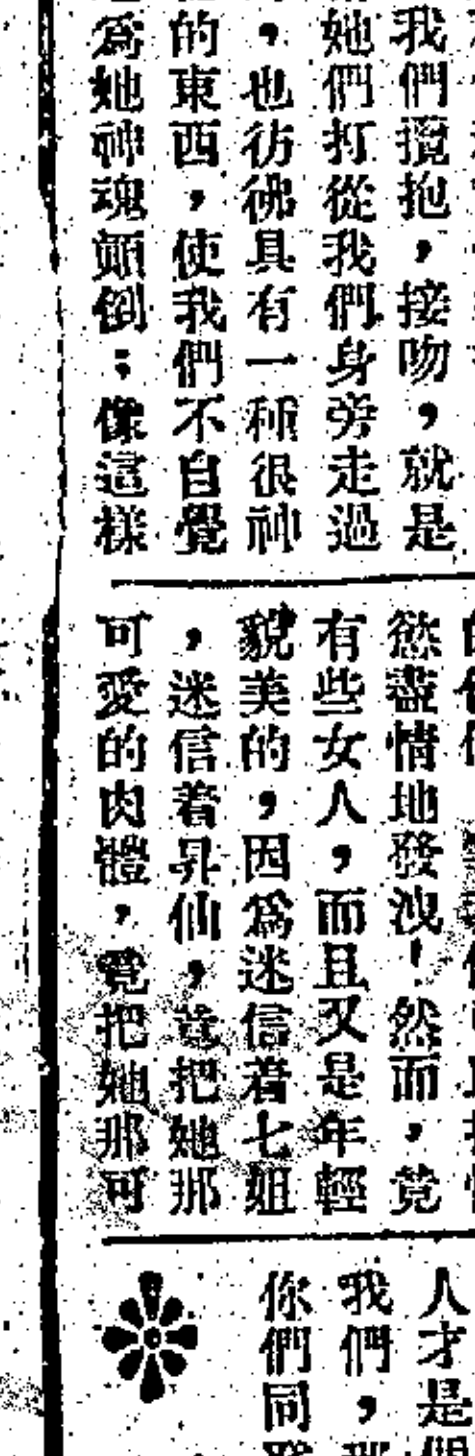 我們攬抱，接吻，就是
她們打從我們身旁走過
，也彷彿具有一種很神
的東西，使我們不自覺
爲她神魂顚倒；像這樣
慾盡情地發洩！然而，竟
有些女人，而且又是年輕
貌美的，因爲迷信着七姐
，迷信着昇仙，竟把她那
可愛的肉體，竟把她那可
人才是
我們，
你們同